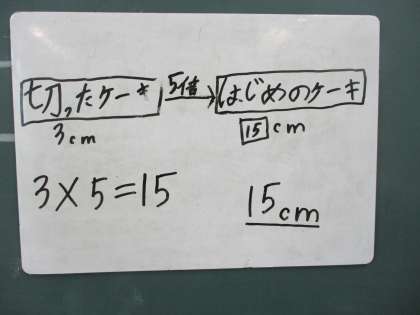 切ったケーキ 5倍 はじめのケーキ
3cm 15cm
3×5=15
15cm